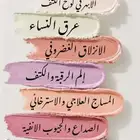 الابهري لوح الكتف
عرق النساء
الانزلاق الغضروفي
الم الرقبة والكتف
المساج العلاجي والاسترخائي
الصداع والجيوب الانفية